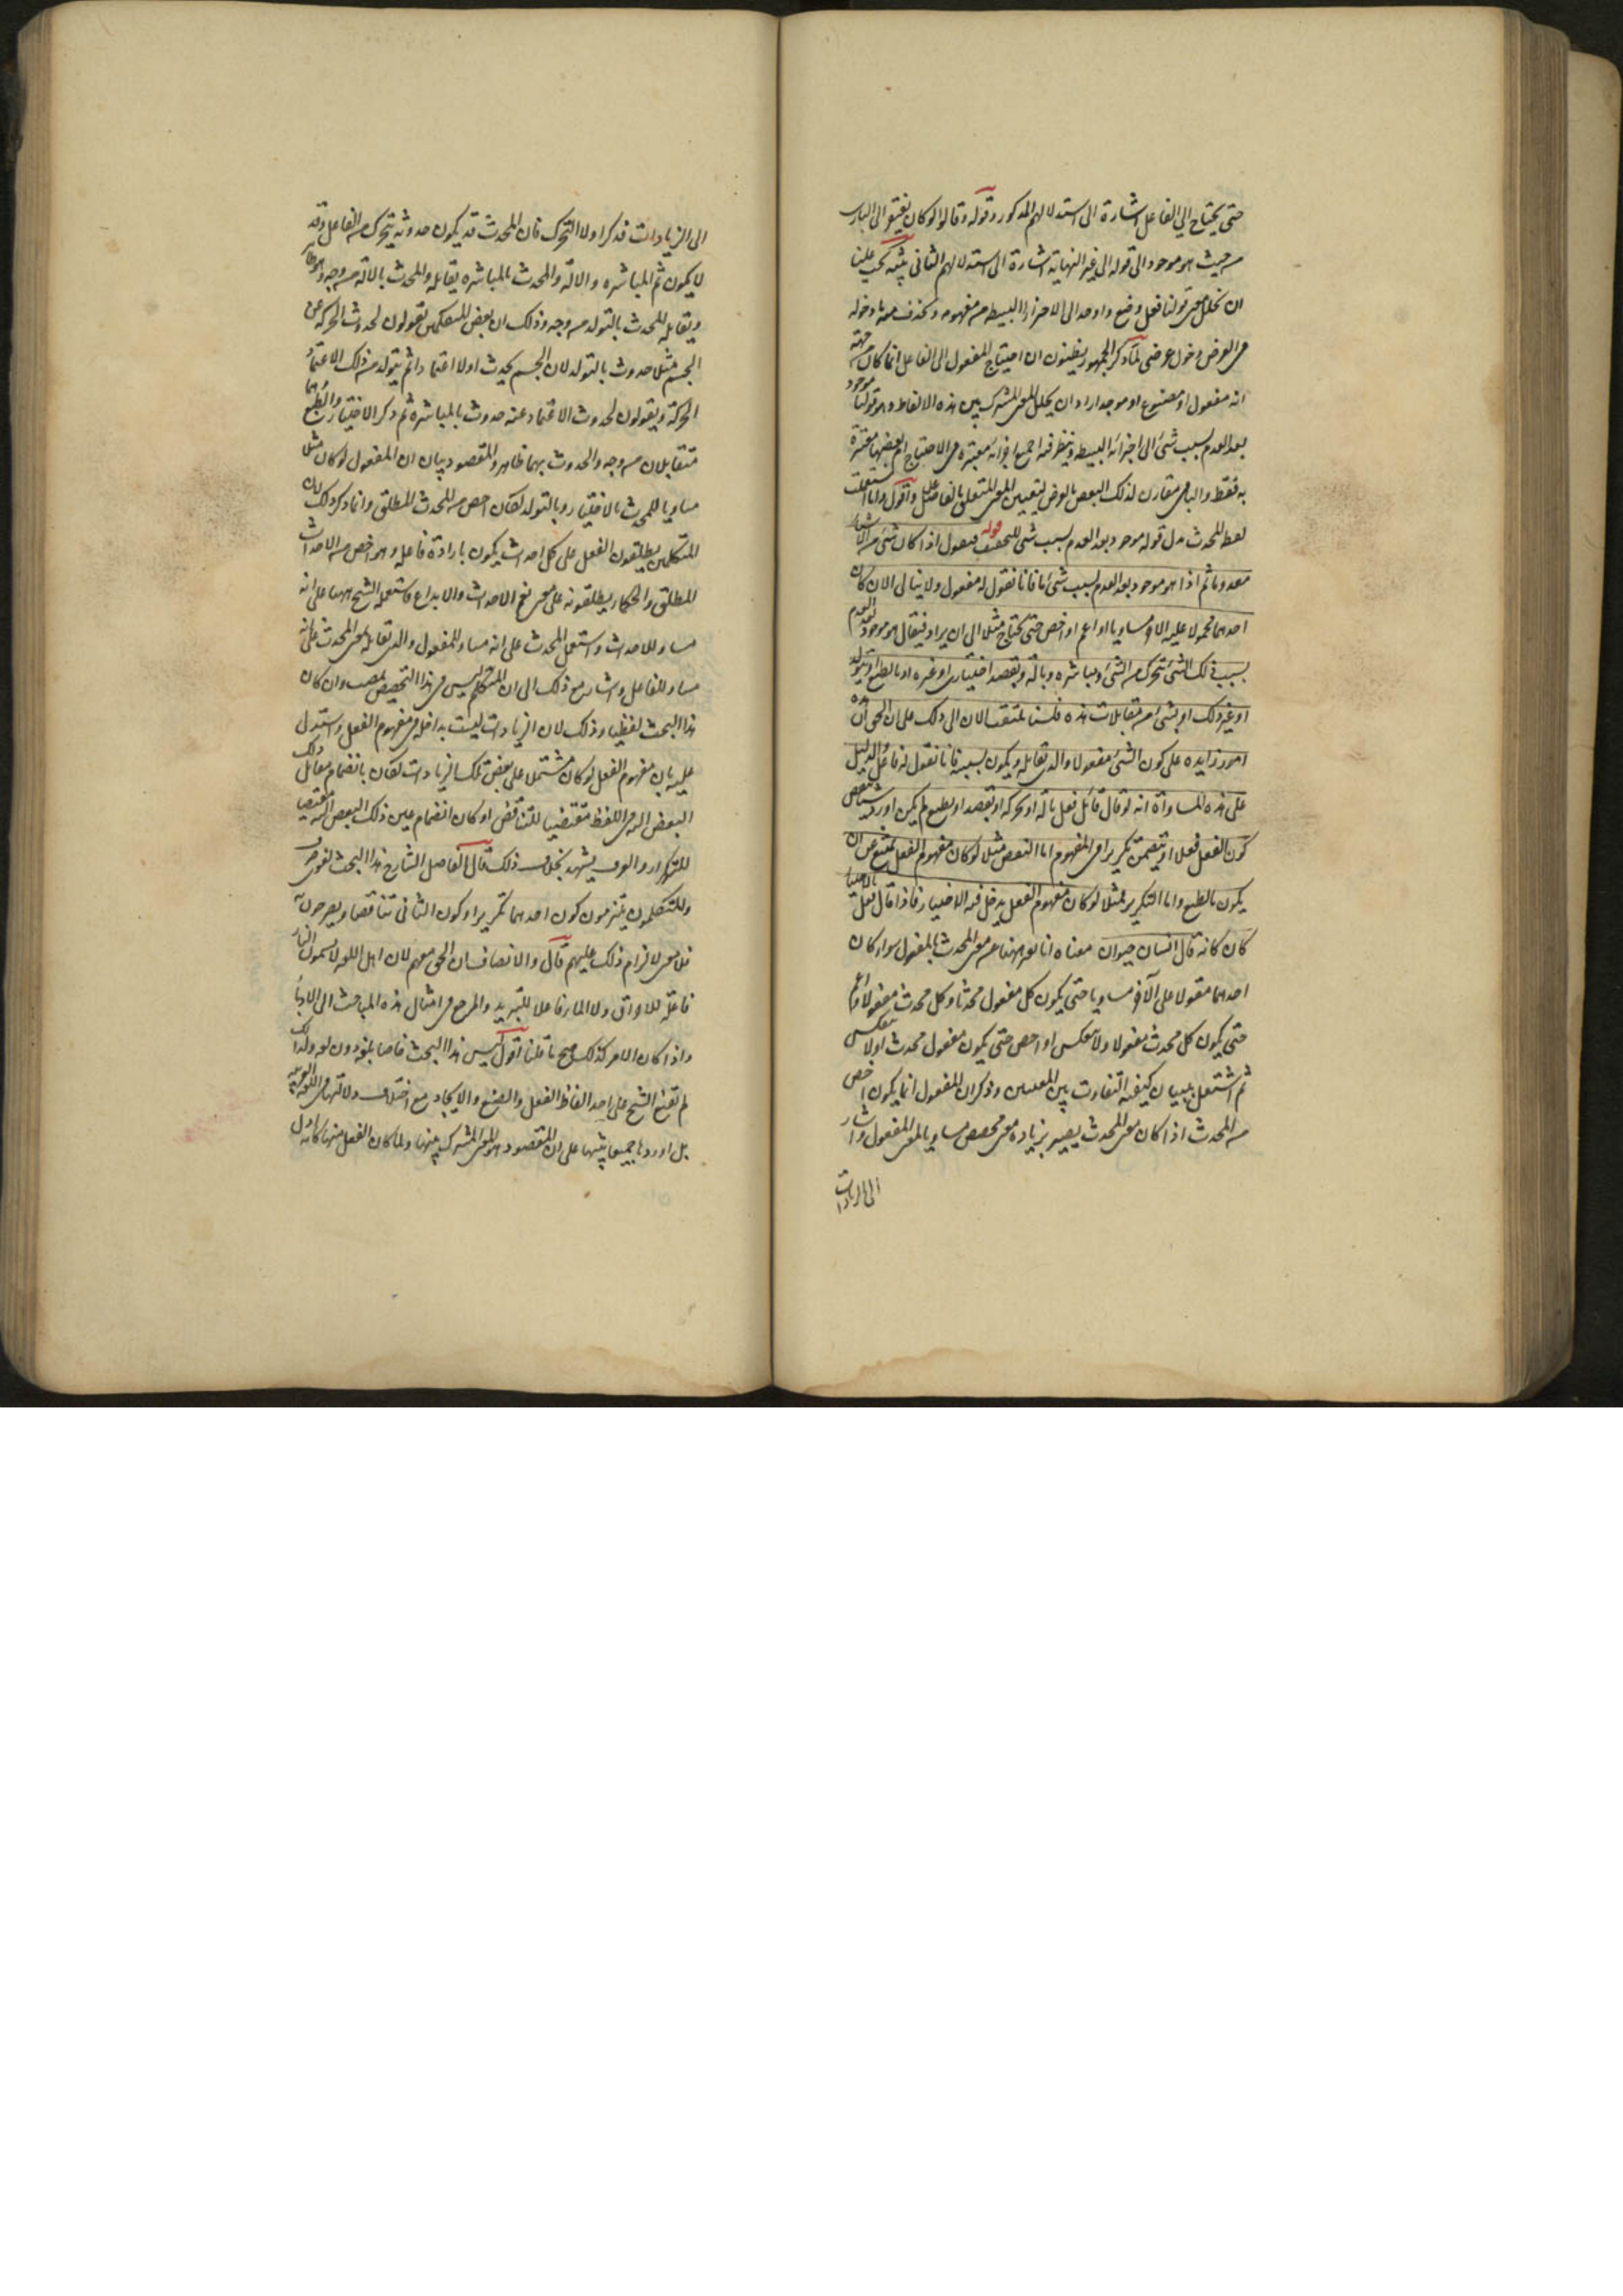 حتى يحتاج الى الفاعل اشارة الى استدلالهم المذكور وقوله وقالوا لو كان يفتقر الى البارى
من حيث هو موجود الى قوله الى غير النهاية اشارة الى استدلالهم الثانى تنبيه يجب علينا
ان نحلل معنى قولنا فعل وصنع واوجد الى الاجزاء البسيطة من مفهومه ونحذف منه ما دخوله
فى الغرض دخول عرضى لما ذكر ان الجمهور يظنون ان احتياج المفعول الى الفاعل انما كان من جهة
انه مفعول او مصنوع او موجد اراد ان يحلل المعنى المشترك بين هذه الالفاظ وهو قولنا موجود
بعد العدم بسبب شئ الى اجزائه البسيطة وينظر فيه اجميع اجزائه معتبرة فى الاحتياج ام بعضها معتبرة
به فقط والباقى مقارن لذلك البعض بالعرض ليتعين المعنى المتعلق بالفاعل واقول وانا استعملت
لفظ المحدث بدل قوله موجود بعد العدم بسبب شئ للتخفيف قوله فنقول اذا كان شئ من الاشياء
معدوما ثم اذا هو موجود بعد العدم بسبب شئ ما فانا نقول له مفعول ولا نبالى الان كان
احدهما محمولا عليه الاخر مساويا او اعم او اخص حتى يحتاج مثلا الى ان يزاد فيقال هو موجود بعد العدم
بسبب ذلك الشئ بتحرك من الشئ وبمباشرة وبآلة وبقصد اختيارى او غيره او بالطبع او تولد
او غير ذلك او بشئ من مقابلات هذه فلسنا نلتفت الان الى ذلك على ان الحق ان هذه
امور زايدة على كون الشئ مفعولا والذى يقابله ويكون بسببه فانا نقول له فاعل الدليل
على هذه المساواة انه لو قال قائل فعل بآلة او بحركة او بقصد او بطبع لم يكن اورد شيئا ينقض
كون الفعل فعلا او يتضمن تكريرا فى المفهوم اما النقض فمثلا لو كان مفهوم الفعل يمنع عن ان
يكون بالطبع واما التكرير فمثلا لو كان مفهوم الفعل يدخل فيه الاختيار فاذا قال فعل بالاختيار
كان كانه قال انسان حيوان معناه انا نعبر ههنا عن معنى المحدث بالمفعول سواء كان
احدهما مقولا على الآخر مساويا حتى يكون كل مفعول محدثا وكل محدث مفعولا او اعم
حتى يكون كل محدث مفعولا ولا ينعكس او اخص حتى يكون كل مفعول محدث اولا ينعكس
ثم اشتغل ببيان كيفية التفاوت بين المعنيين وذكر ان المفعول انما يكون اخص
من المحدث اذا كان معنى المحدث يصير بزيادة معنى مخصص مساويا لمعنى المفعول واشار
الى الزيادات
الى الزيادات فذكر اولا التحرك فان المحدث قد يكون حدوثه بتحرك من الفاعل وقد
لا يكون ثم المباشرة والالة والمحدث بالمباشرة يقابله المحدث بالالة من وجه وهو ظاهر
ويقابله المحدث بالتولد من وجه وذلك ان بعض المتكلمين يقولون لحدوث الحركة عن
الجسم مثلا حدوث بالتولد لان الجسم يحدث اولا اعتمادا ثم يتولد من ذلك الاعتماد
الحركة ويقولون لحدوث الاعتماد عنه حدوث بالمباشرة ثم ذكر الاختيار والطبع وهما
متقابلان من وجه والحدوث بهما ظاهر والمقصود بيان ان المفعول لو كان مثلا
مساويا للمحدث بالاختيار وبالتولد لكان اخص من المحدث المطلق وانما ذكر ذلك لان
المتكلمين يطلقون الفعل على كل احداث يكون بارادة فاعله وهو اخص من الاحداث
المطلق والحكماء يطلقونه على معنى يعم الاحداث والابداع فاستعمله الشيخ ههنا على انه
مساو للاحداث واستعمل المحدث على انه مساو للمفعول والذى يقابله معنى المحدث على انه
مساو للفاعل واشار مع ذلك الى ان المتكلم ليس فى هذا التخصيص بمصيب وان كان
هذا البحث لفظيا وذلك لان الزيادات ليست بداخلة فى مفهوم الفعل واستدل
عليه بان مفهوم الفعل لو كان مشتملا على بعض تلك الزيادات لكان بانضمام مقابل ذلك
البعض اليه فى اللفظ مقتضيا للتناقض او كان انضمام عين ذلك البعض اليه مقتضيا
للتكرار والعرف يشهد بخلاف ذلك قال الفاضل الشارح هذا البحث لغوى صرف
والمتكلمون يلتزمون كون احدهما تكريرا وكون الثانى تناقضا ويصرحون به
فلا معنى لالزام ذلك عليهم قال والانصاف ان الحق معهم لان اهل اللغة لا يسمون النار
فاعلة للاحراق ولا الماء فاعلا للتبريد والمرجع فى امثال هذه المباحث الى الادباء
واذا كان الامر كذلك صح ما قلنا اقول ليس هذا البحث خاصا بلغة دون لغة ولذلك
لم يقنع الشيخ على احد الفاظ الفعل والصنع والايجاد مع اختلاف دلالتها فى اللغة العربية
بل اوردها جميعا تنبيها على ان المقصود هو المعنى المشترك بينها ولما كان الفعل منها كانه اول